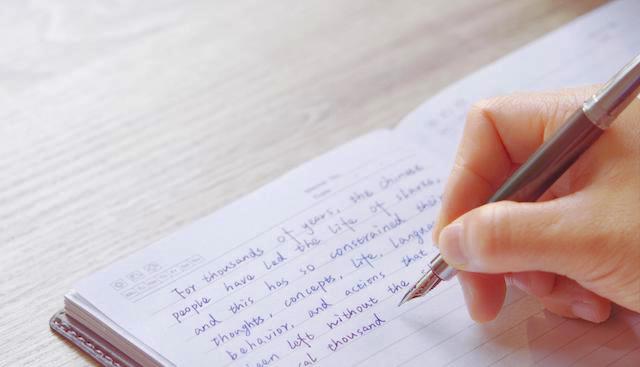 For thousands of years, the Chinese
people have led the life of slaves,
and this has so constrained their
thoughts, concepts, life, langua
behavior, and actions that
een left without the
al thousand